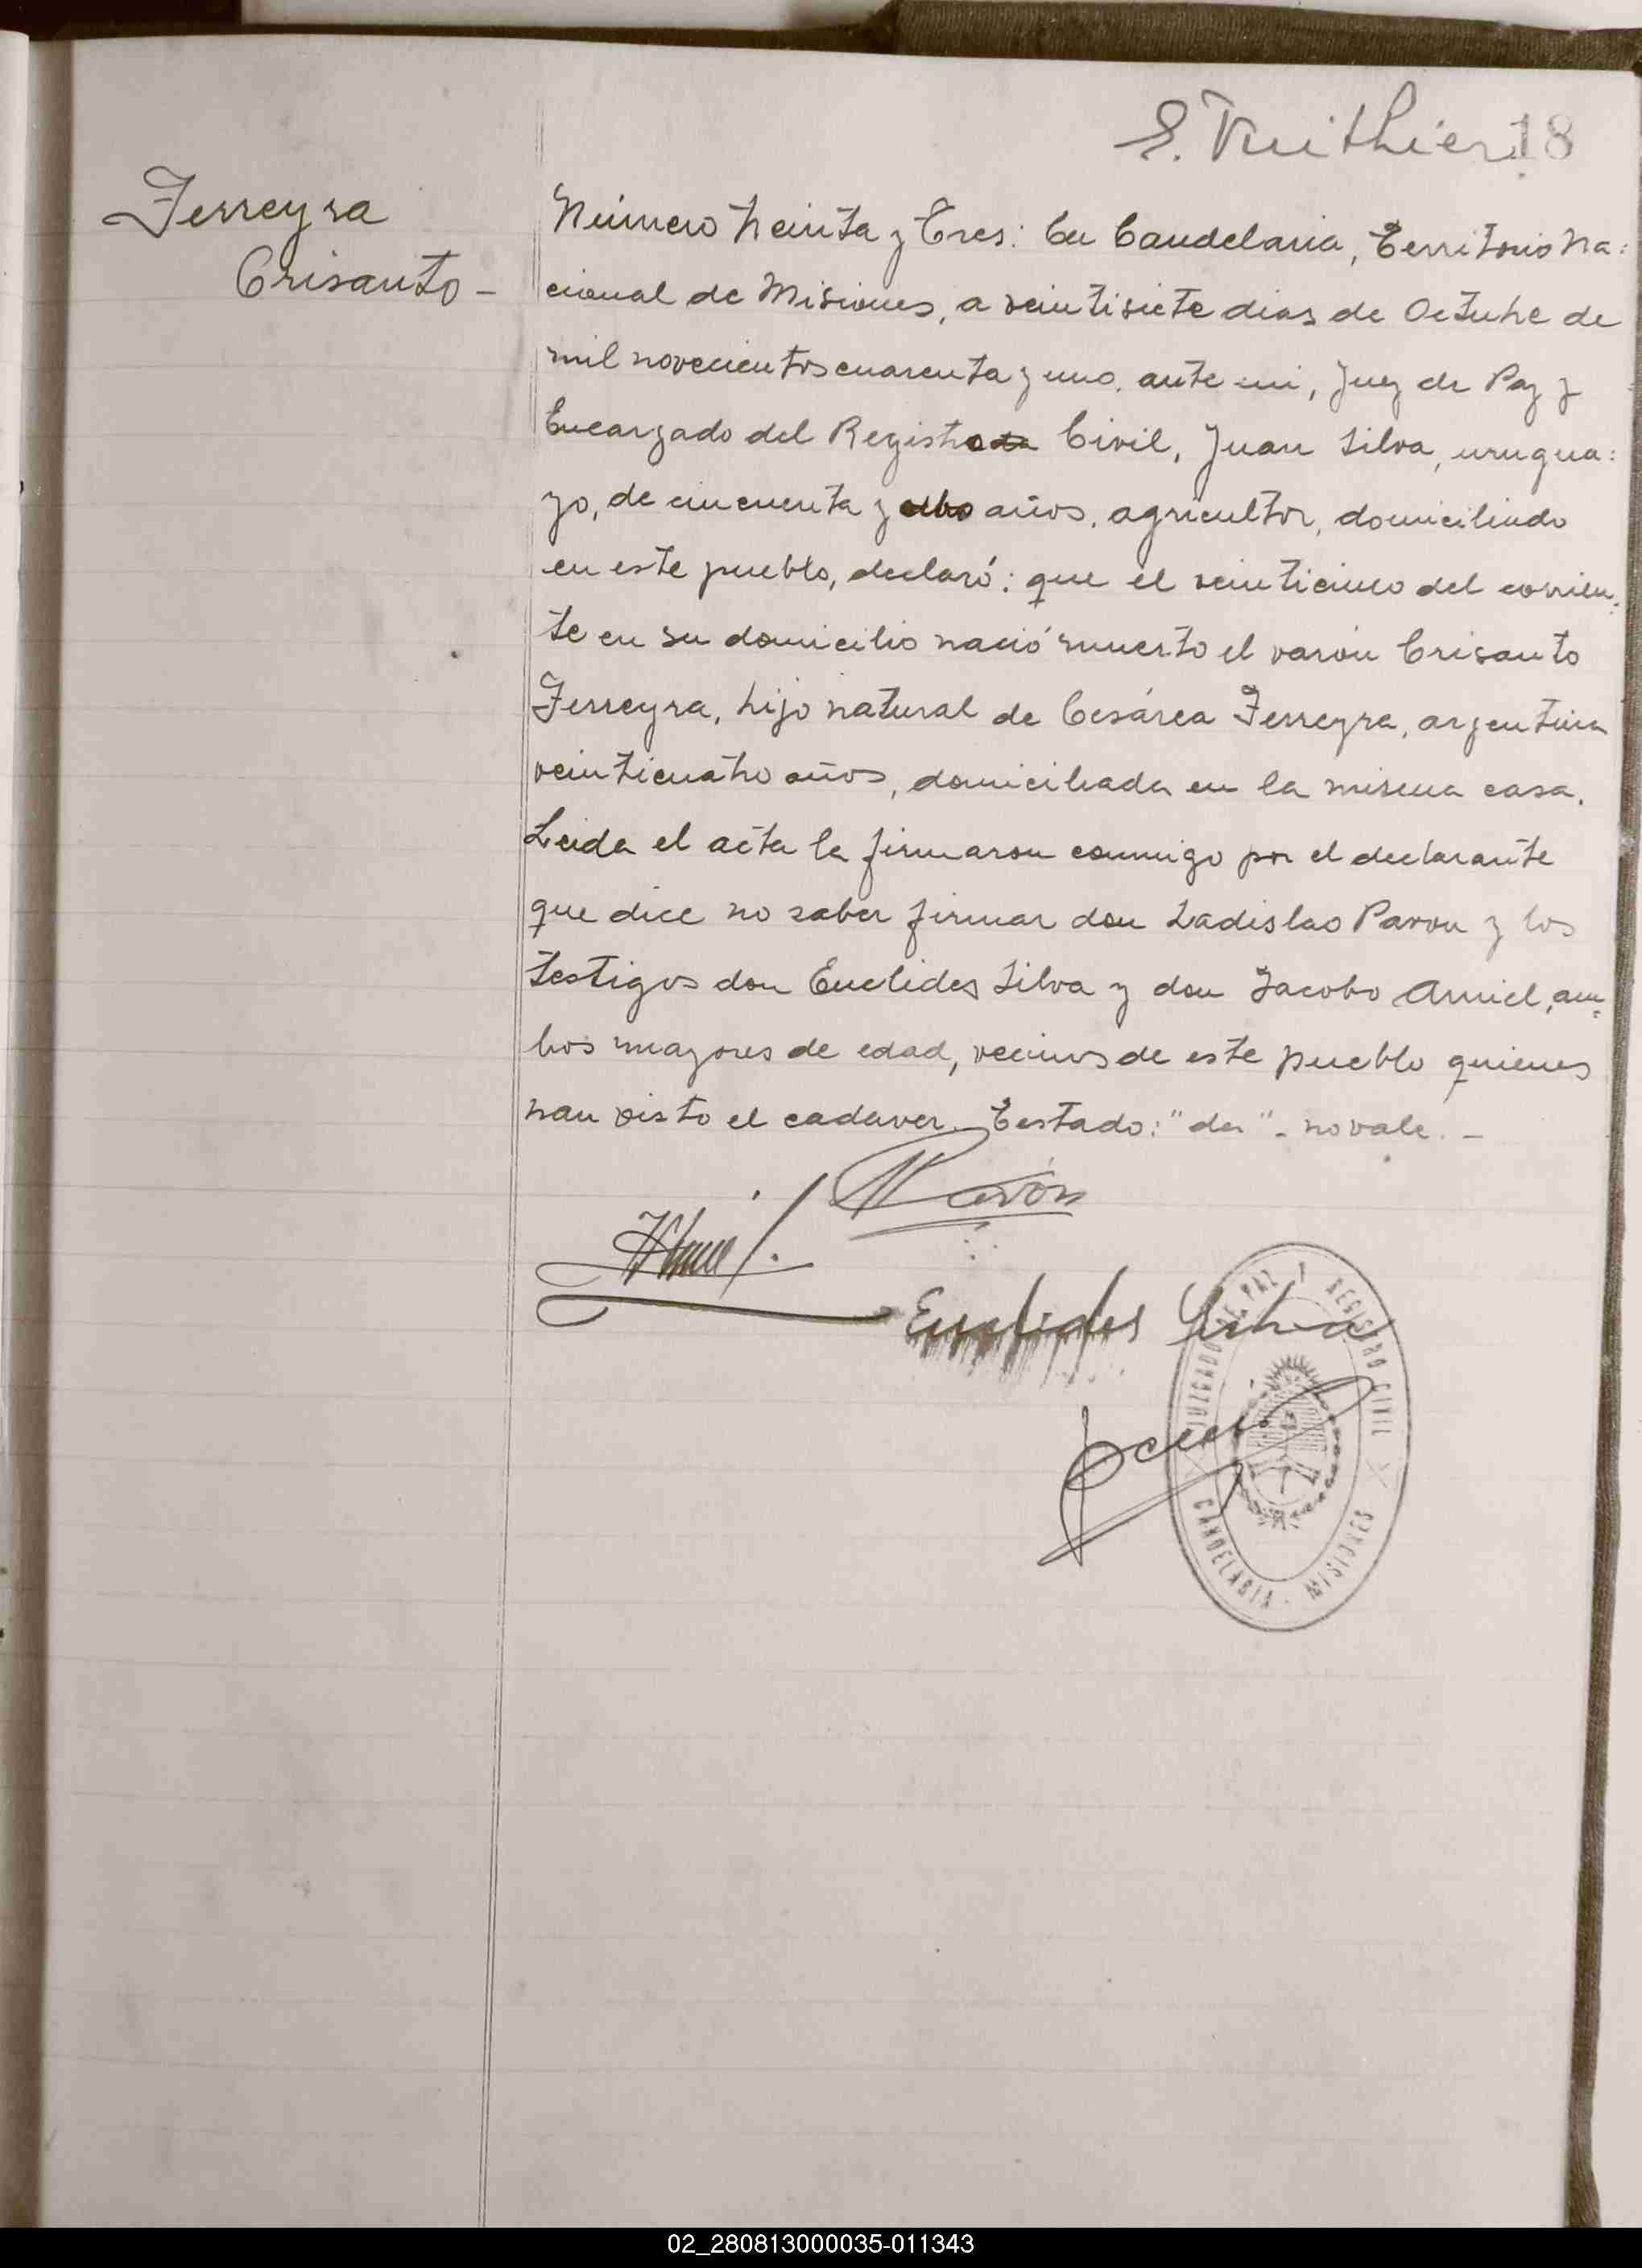 E. Vuithier 18
Ferreyra
Crisanto -
Número treinta y Tres: En Candelaria, Territorio Na:
cional de Misiones, a veintisiete dias de Octubre de
mil novecientos cuarenta y uno, ante mi, Juez de Paz y
Encargado del Registro de Civil, Juan Silva, urugua:
yo, de cincuenta y ocho años, agricultor, domiciliado
en este pueblo, declaró: que el veinticinco del corrien:
te en su domicilio nació muerto el varón Crisanto
Ferreyra, hijo natural de Cesárea Ferreyra, argentina
veinticuatro años, domiciliada en la misma casa.
Leida el acta la firmaron conmigo por el declarante
que dice no saber firmar don Ladislao Pavon y los
testigos don Euclides Silva y don Jacobo Amiel, am:
bos mayores de edad, vecinos de este pueblo quienes
han visto el cadaver. Testado: "de" - no vale. -
Pavón
Euclides Silva
JUZGADO DE PAZ Y REGISTRO CIVIL
CANDELARIA - MISIONES
02_280813000035-011343